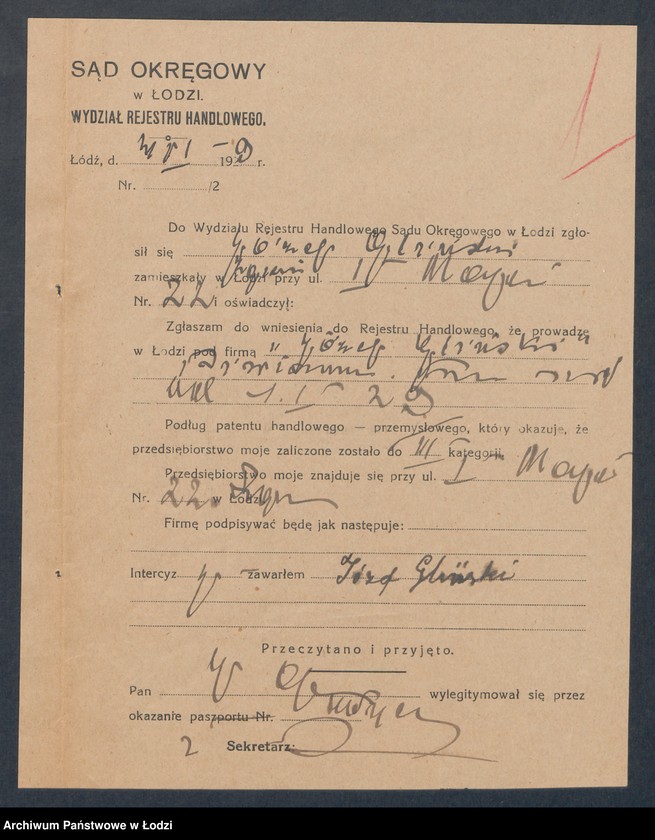 SĄD OKRĘGOWY
w ŁODZI.
WYDZIAŁ REJESTRU HANDLOWEGO.
Łódź, d. 192 9 r.
Nr. /2
Do Wydziału Rejestru Handlowego Sądu Okręgowego w Łodzi zgło-
sił się Józef Gliński
zamieszkały w Łodzi przy ul. I Maja
Nr. 22 i oświadczył:
Zgłaszam do wniesienia do Rejestru Handlowego, że prowadzę
w Łodzi pod firmą „Józef Gliński"
od 1.I 29
Podług patentu handlowego — przemysłowego, który okazuję, że
przedsiębiorstwo moje zaliczone zostało do III kategorji.
Przedsiębiorstwo moje znajduje się przy ul. I Maja
Nr. 22 w Łodzi
Firmę podpisywać będę jak następuje:
Intercyz zawarłem Józef Gliński
Przeczytano i przyjęto.
Pan wylegitymował się przez
okazanie paszportu Nr.
2 Sekretarz:
Archiwum Państwowe w Łodzi